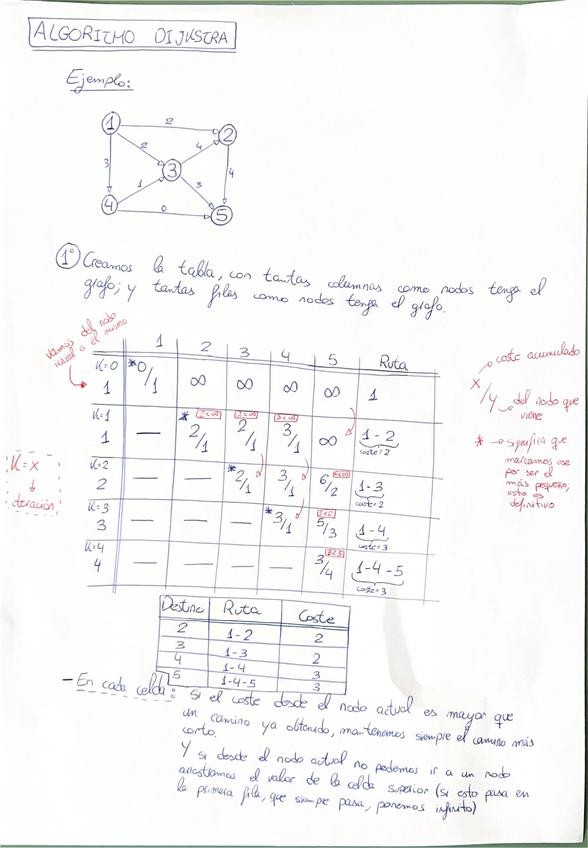 ALGORITMO DIJKSTRA
Ejemplo:
1 2 2
2 4
3 3 4
1 3
4 0 5
1º Creamos la tabla, con tantas columnas como nodos tenga el
grafo; y tantas filas como nodos tenga el grafo.
vamos del nodo
a el mismo
1 2 3 4 5 Ruta
K=0
1 *0/1 ∞ ∞ ∞ ∞ 1
K=1 2<∞ 2<∞ 3<∞
1 — *2/1 2/1 3/1 ∞ 1-2
coste=2
K=2 6<∞
2 — — *2/1 3/1 6/2 1-3
coste=2
K=3 5<6
3 — — — *3/1 5/3 1-4
coste=3
K=4 3<5
4 — — — — 3/4 1-4-5
coste=3
K=x
↓
iteración
coste acumulado
x/y → del nodo que
viene
* → significa que
marcamos ese
por ser el
más pequeño,
esto es
definitivo
Destino Ruta Coste
2 1-2 2
3 1-3 2
4 1-4 3
5 1-4-5 3
- En cada celda: Si el coste desde el nodo actual es mayor que
un camino ya obtenido, mantenemos siempre el camino más
corto.
Y si desde el nodo actual no podemos ir a un nodo
arrastramos el valor de la celda superior (si esto pasa en
la primera fila, que siempre pasa, ponemos infinito)